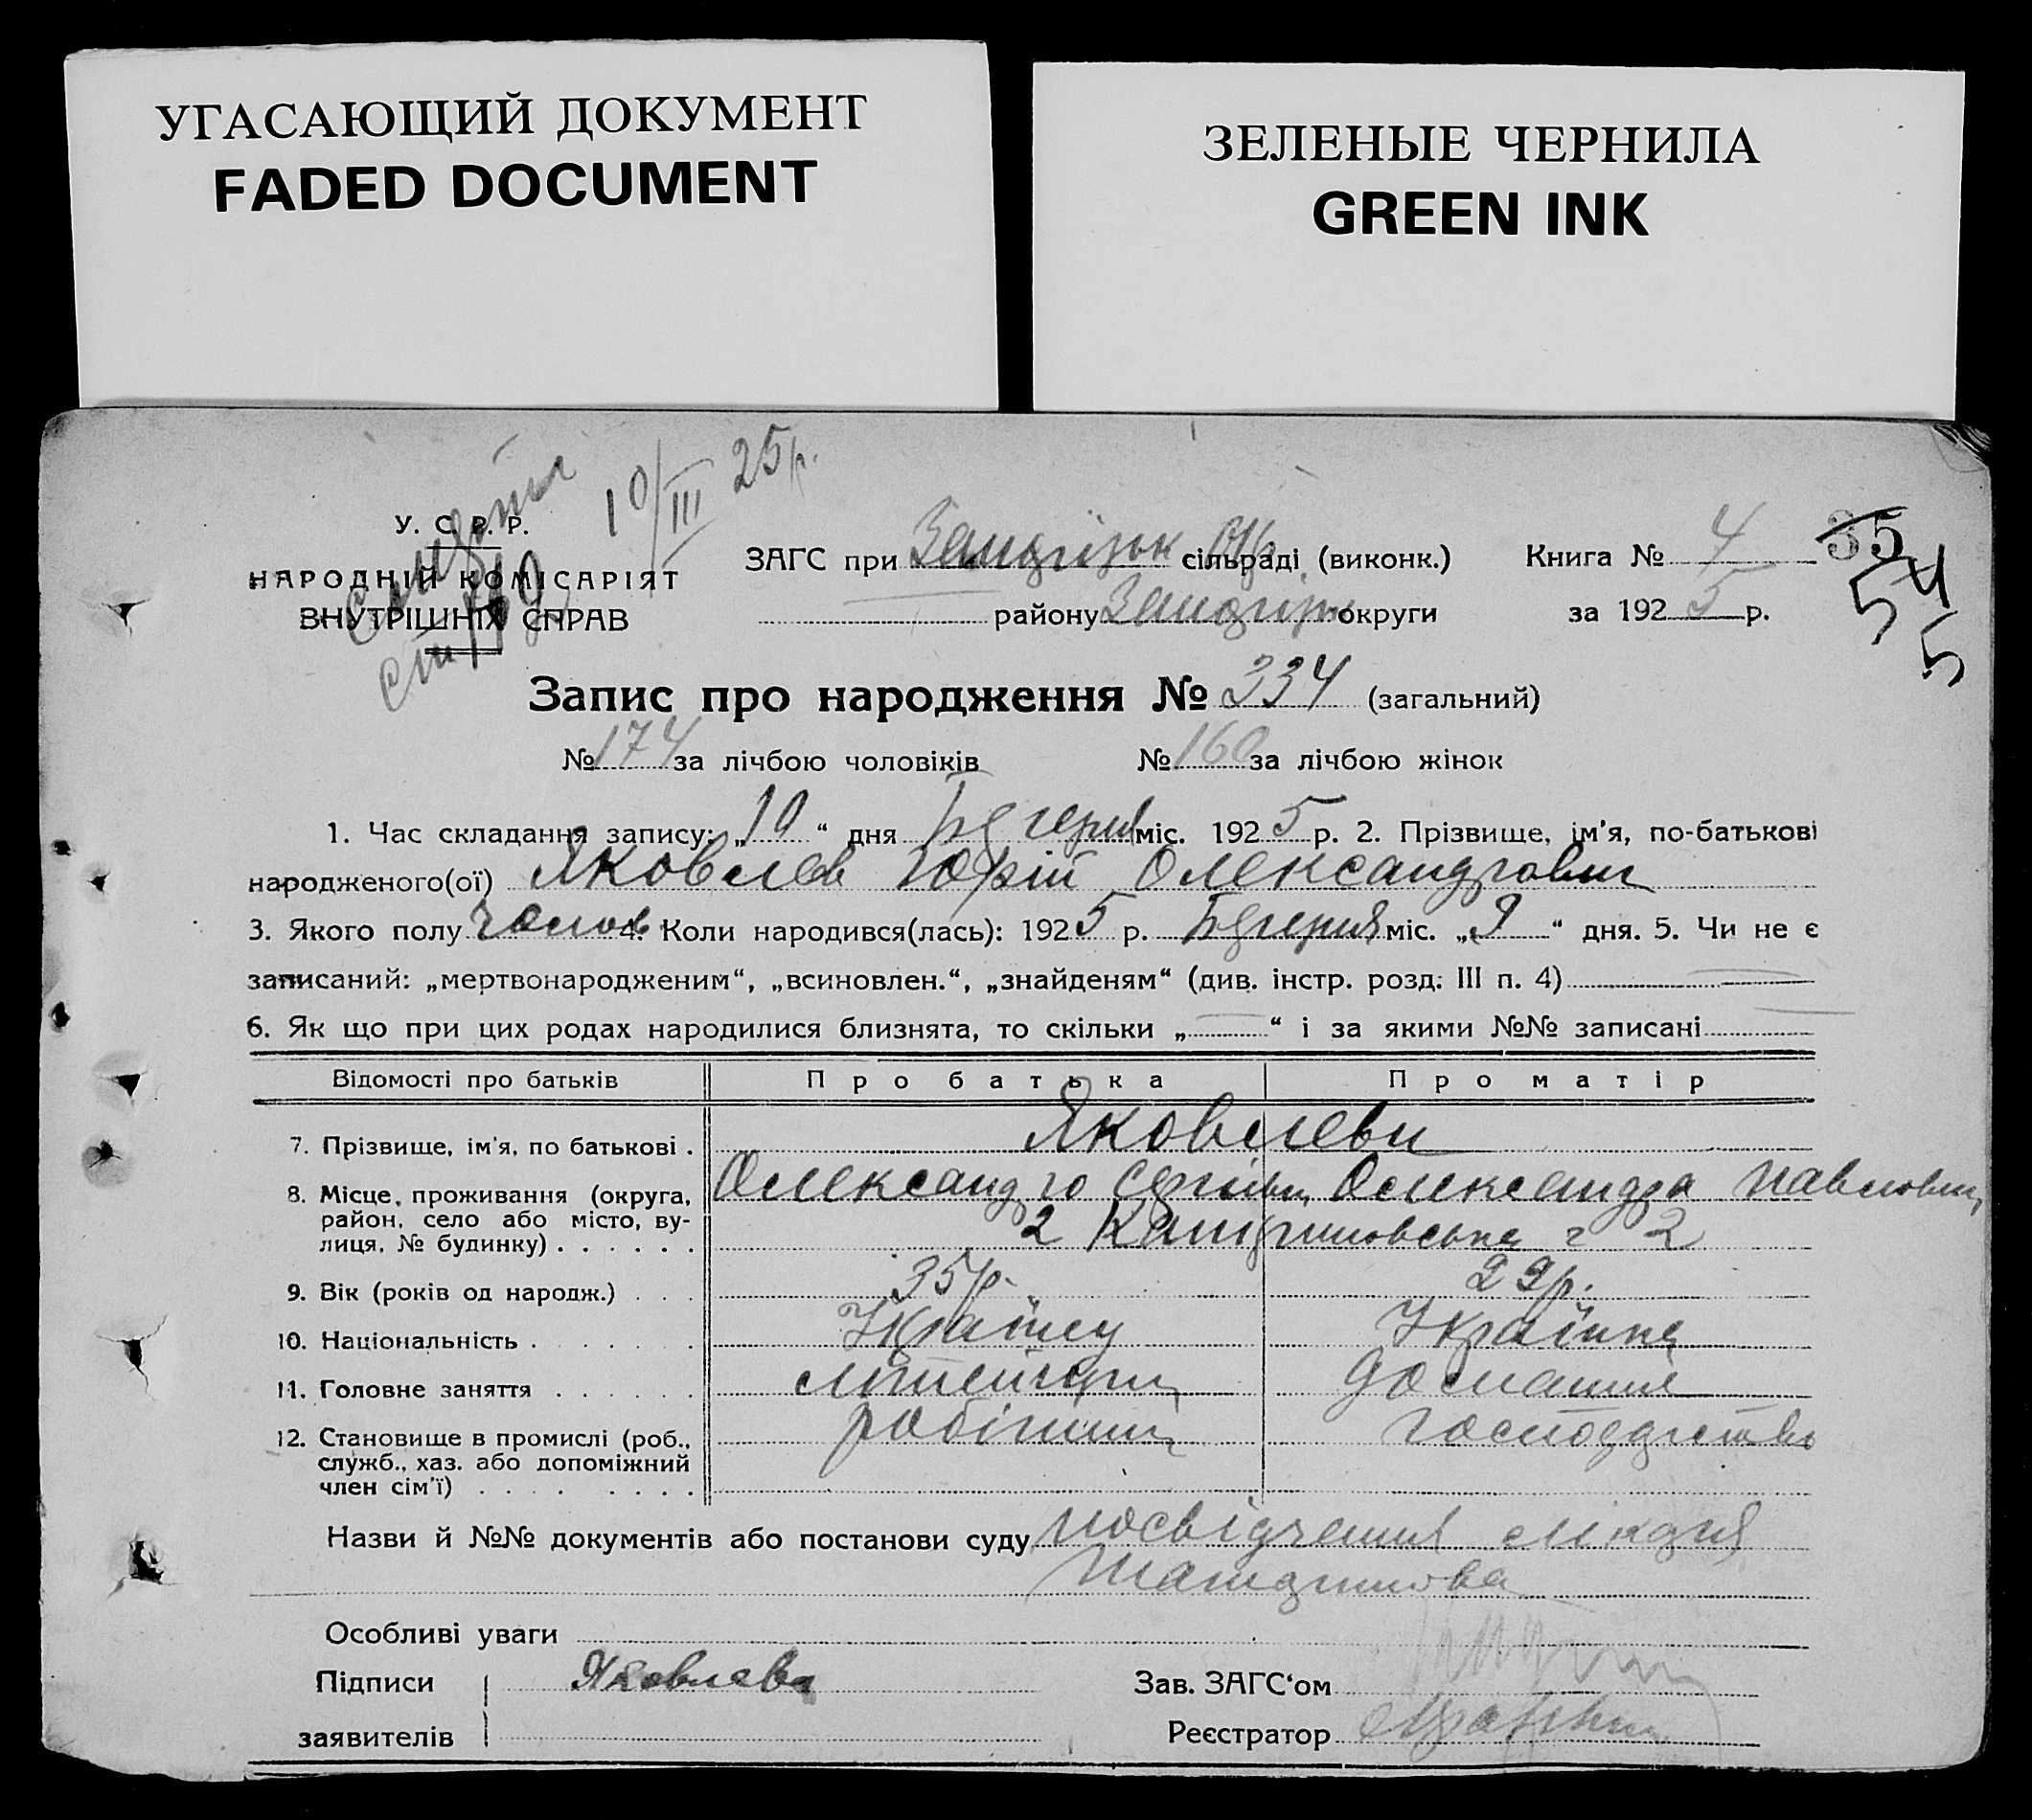 УГАСАЮЩИЙ ДОКУМЕНТ
FADED DOCUMENT
ЗЕЛЕНЫЕ ЧЕРНИЛА
GREEN INK
10/III 25р.
У. С. Р. Р.
НАРОДНІЙ КОМІСАРІЯТ
ВНУТРІШНІХ СПРАВ
ЗАГС при сільраді (виконк.)
району округи
Книга № 4
за 1925 р.
35
54
5
Запис про народження № 334 (загальний)
№ 174 за лічбою чоловіків № 160 за лічбою жінок
1. Час складання запису: „10“ дня міс. 1925 р. 2. Прізвище, ім'я, по-батькові
народженого(ої) Яковлєв Юрій Олександрович
3. Якого полу чолов 4. Коли народився(лась): 1925 р. міс. „9“ дня. 5. Чи не є
записаний: „мертвонародженим“, „всиновлен.“, „знайденям“ (див. інстр. розд: III п. 4)
6. Як що при цих родах народилися близнята, то скільки „—“ і за якими №№ записані
Відомості про батьків Про батька Про матір
7. Прізвище, ім'я, по батькові . Яковлєви
Олександр Олександра Павловн
8. Місце, проживання (округа,
район, село або місто, ву-
лиця, № будинку) . . . . . . 2 2
9. Вік (років од народж.) . . . 35р. 29р.
10. Національність . . . . . . Українец Українка
11. Головне заняття . . . . . . домашнє
12. Становище в промислі (роб., робітник господарство
служб., хаз. або допоміжний
член сім'ї) . . . . . . . .
Назви й №№ документів або постанови суду посвідчення лікаря
Особливі уваги
Підписи Яковлева
заявителів
Зав. ЗАГС'ом
Реєстратор